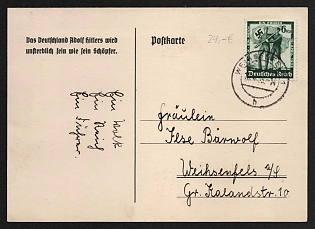 Das Deutschland Adolf Hitlers wird
unsterblich sein wie sein Schöpfer.
Postkarte
24,-€
6
Deutsches Reich
Ein Volk
Ein Reich
Ein Führer.
Fräulein
Ilse Bärwolf
Weißenfels a/S
Gr. Kalandstr. 10